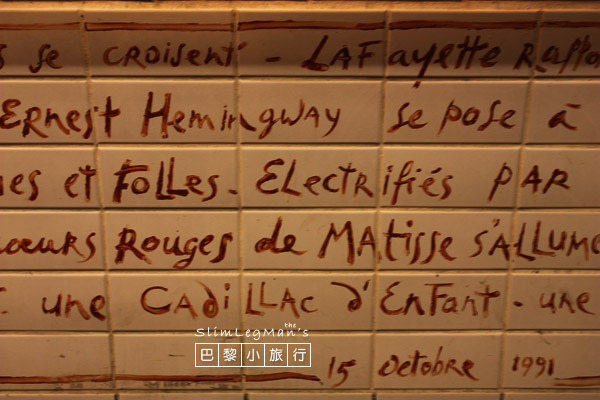 s se croisent - LAFayette Rappo
Ernest Hemingway se pose à
ues et Folles. Electrifiés PAR
œurs Rouges de MAtisse s'ALLUME
une CAdiLLAc d'EnFAnt - une
the
SlimLegMan's
巴黎小旅行
15 octobre 1991